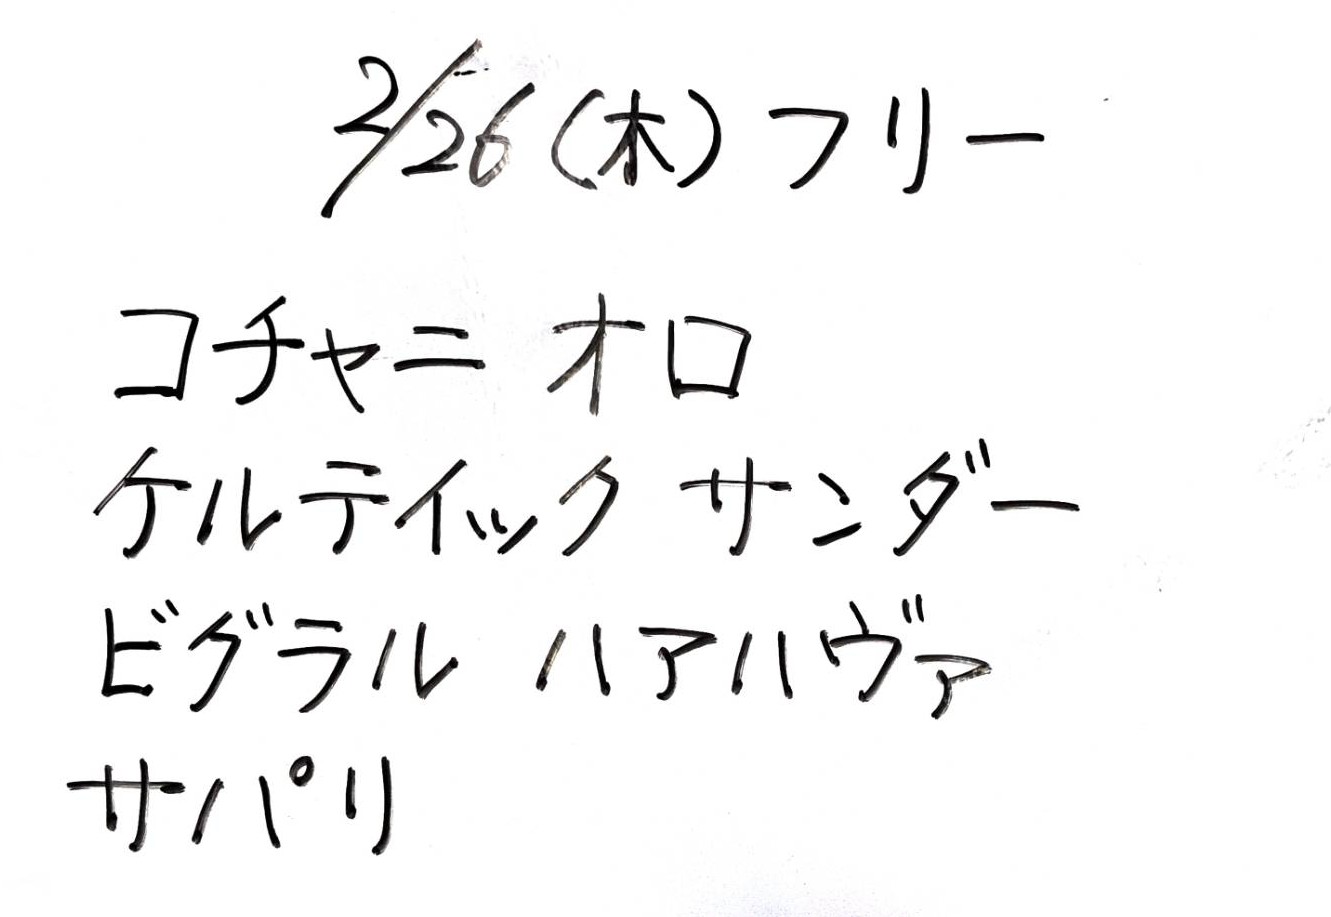 2/26(木)フリー
コチャニ オロ
ケルティック サンダー
ビグラル ハアハヴァ
サパリ